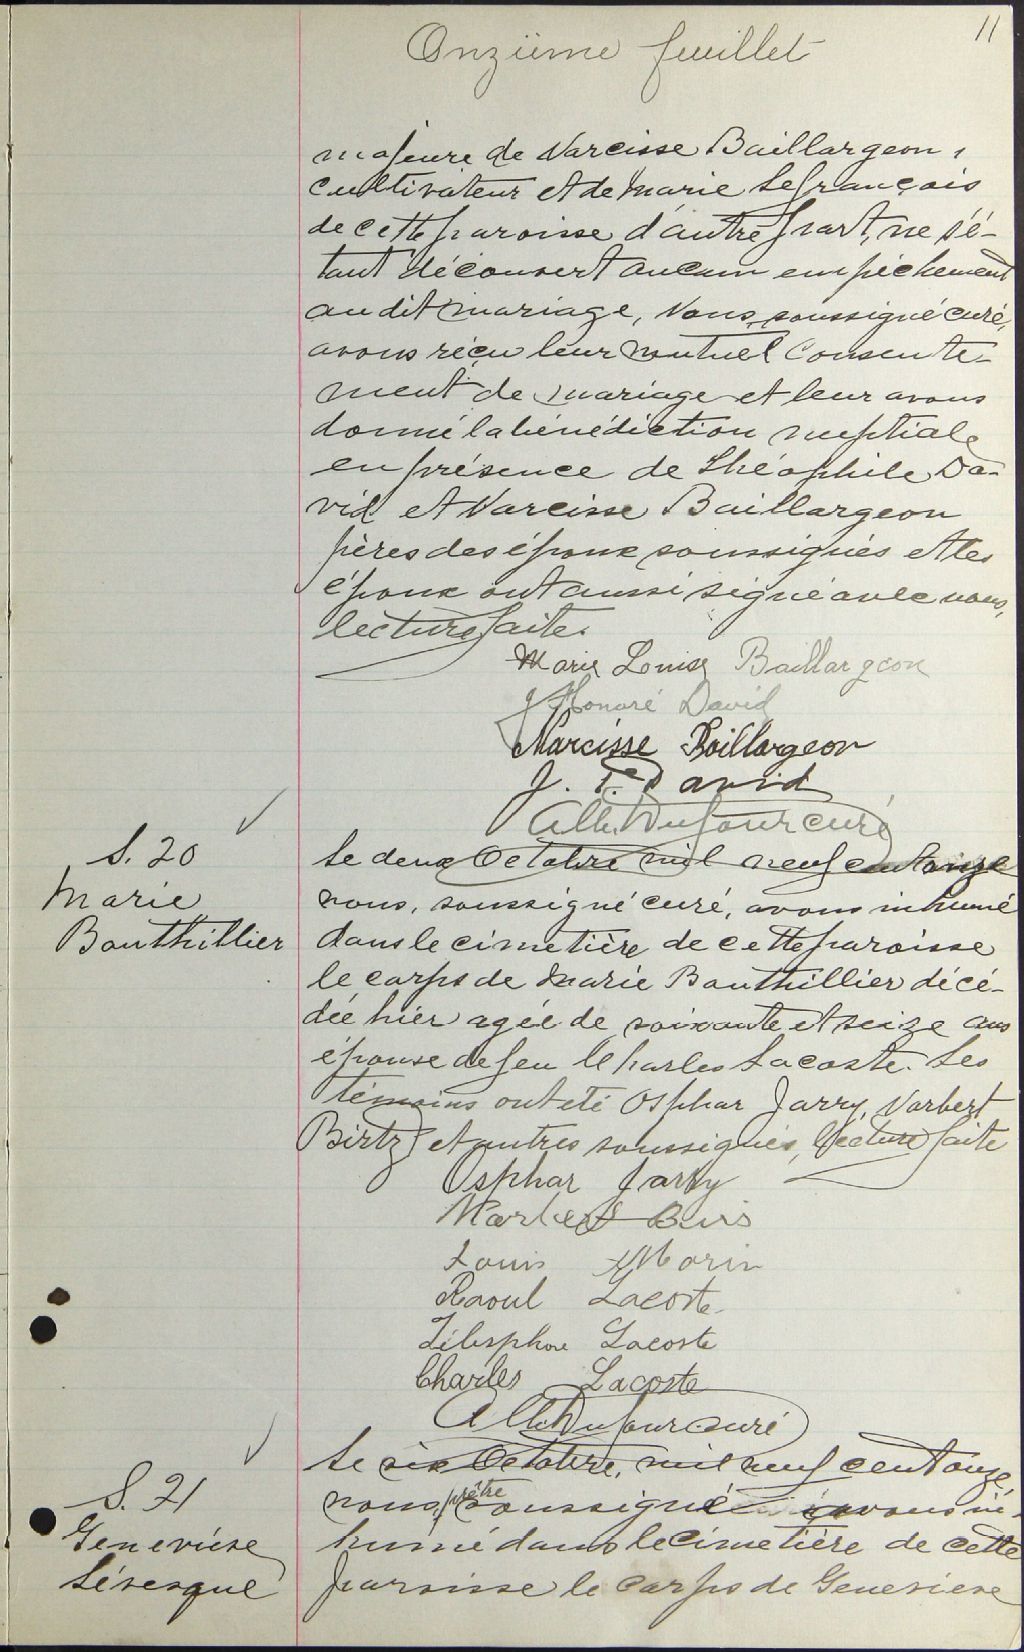 11
Onzième feuillet
majeure de Narcisse Baillargeon,
cultivateur et de Marie Lefrançois
de cette paroisse d'autre part, ne s'é-
tant découvert aucun empêchement
au dit mariage, Nous, soussigné curé,
avons reçu leur mutuel consente-
ment de mariage et leur avons
donné la bénédiction nuptiale
en présence de Théophile Da-
vid et Narcisse Baillargeon
pères des époux soussignés et les
époux ont aussi signé avec nous,
lecture faite.
Marie Louise Baillargeon
J Honoré David
Narcisse Baillargeon
J. T. David
Alb. Dufour curé
S. 20
Marie
Bouthillier
Le deux Octobre mil neuf cent onze
nous, soussigné curé, avons inhumé
dans le cimetière de cette paroisse
le corps de Marie Bouthillier décé-
dée hier agée de soixante et seize ans
épouse de feu Charles Lacoste. Les
témoins ont été Osphar Jarry, Norbert
Birtz et autres soussignés, lecture faite
Osphar Jarry
Norbert Birs
Louis Morin
Raoul Lacoste
Télesphore Lacoste
Charles Lacoste
Alb. Dufour curé
S. 21
Geneviève
Lévesque
Le six Octobre, mil neuf cent onze,
nous, prêtre soussigné avons in-
humé dans le cimetière de cette
paroisse le corps de Geneviève